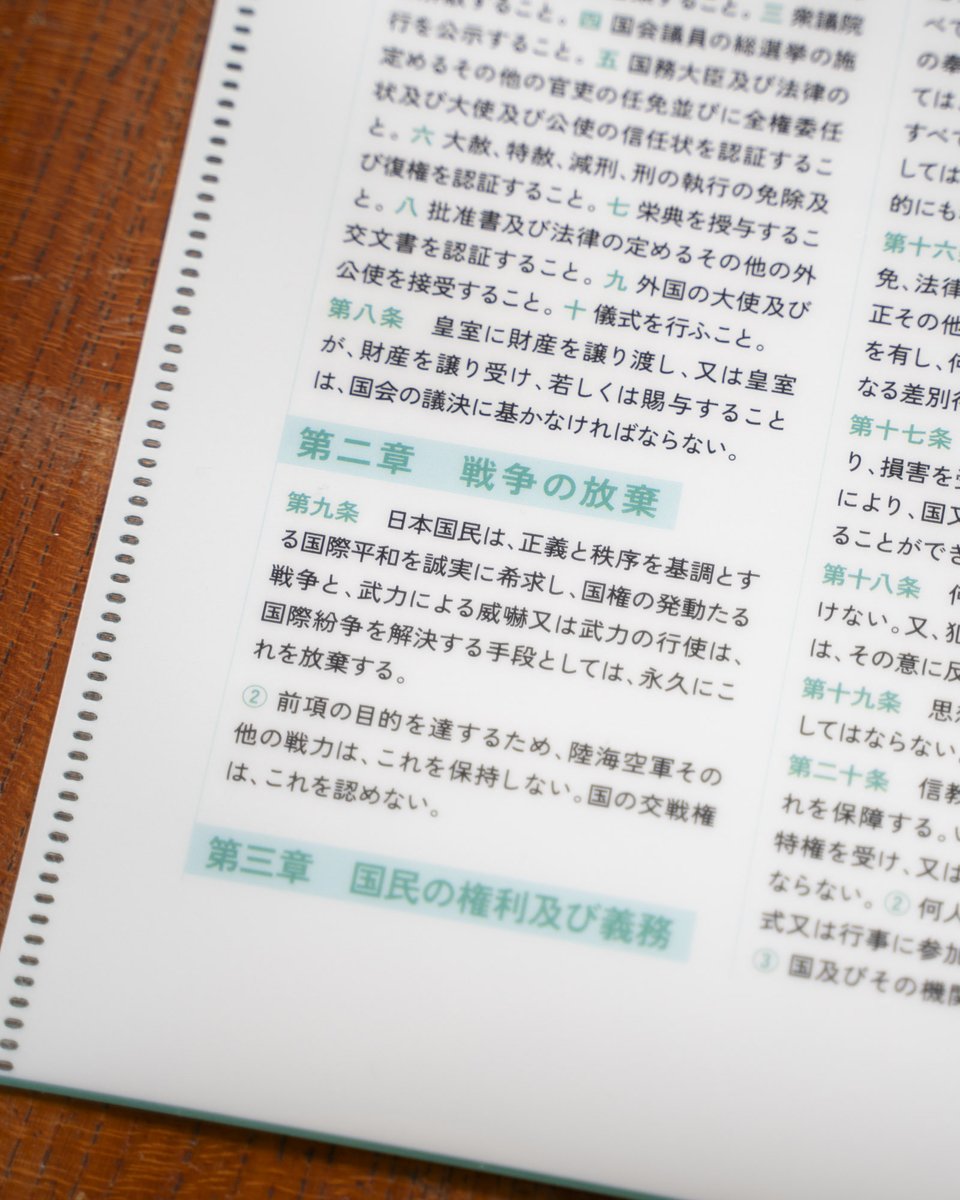 行を公示すること。四 国会議員の総選挙の施
定めるその他の官吏の任免並びに全権委任
状及び大使及び公使の信任状を認証するこ
と。六 大赦、特赦、減刑、刑の執行の免除及
び復権を認証すること。七 栄典を授与するこ
と。八 批准書及び法律の定めるその他の外
交文書を認証すること。九 外国の大使及び
公使を接受すること。十 儀式を行ふこと。
第八条 皇室に財産を譲り渡し、又は皇室
が、財産を譲り受け、若しくは賜与すること
は、国会の議決に基かなければならない。
第二章 戦争の放棄
第九条 日本国民は、正義と秩序を基調とす
る国際平和を誠実に希求し、国権の発動たる
戦争と、武力による威嚇又は武力の行使は、
国際紛争を解決する手段としては、永久にこ
れを放棄する。
② 前項の目的を達するため、陸海空軍その
他の戦力は、これを保持しない。国の交戦権
は、これを認めない。
第三章 国民の権利及び義務
の奉
ては
すべて
しては
的にも
第十六
免、法律
正その他
を有し、何
なる差別待
第十七条
り、損害を受
により、国又
ることができ
第十八条 何
けない。又、犯
は、その意に反
第十九条 思想
してはならない。
第二十条 信教
れを保障する。い
特権を受け、又は
ならない。② 何人
式又は行事に参加
③ 国及びその機関